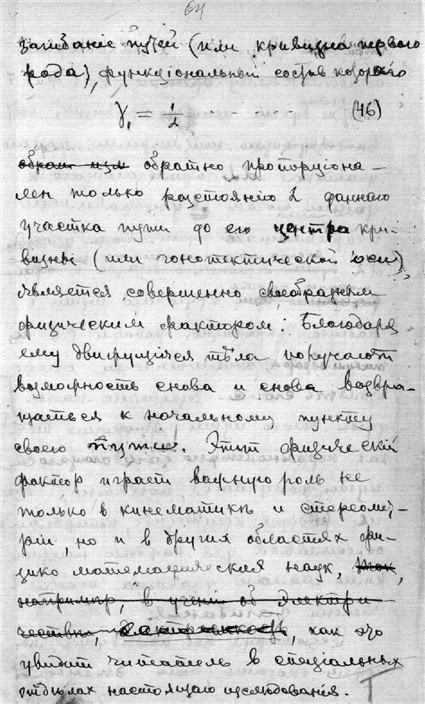 64
загибаніе путей (или кривизна перваго
рода), функціональный состав котораго
γ₁ = 1/2 - - - - - - (46)
обратно пропорціона-
лен только разстоянію 2 даннаго
участка пути до его центра кри-
визны (или гонотектической оси),
является совершенно своеобразным
физическим фактором: Благодаря
ему движущіяся тѣла получают
возможность снова и снова возвра-
щаться к начальному пункту
своего пути. Этот физическій
фактор играет важную роль не
только в кинематикѣ и стереоме-
тріи, но и в других областях фи-
зико математических наук,
например, в ученіи об электри-
чествѣ, как это
увидит читатель в спеціальных
отдѣлах настоящаго изслѣдованія.